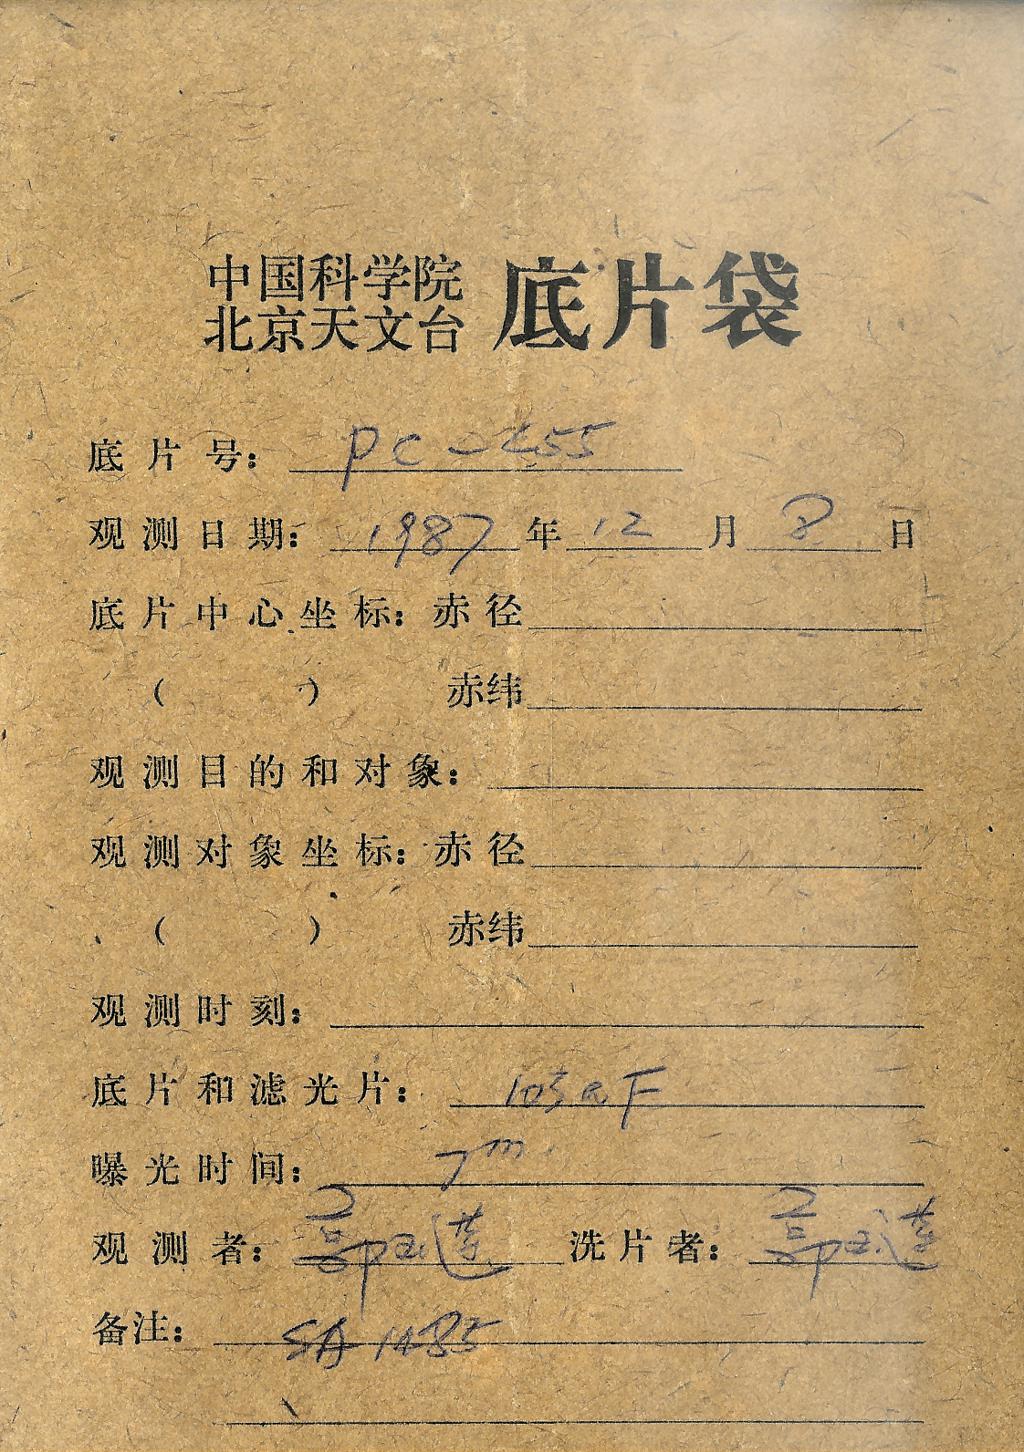 中国科学院
北京天文台 底片袋
底片号： PC-455
观测日期： 1987 年 12 月 8 日
底片中心坐标：赤径
（ ） 赤纬
观测目的和对象：
观测对象坐标：赤径
（ ） 赤纬
观测时刻：
底片和滤光片： 103aF
曝光时间： 7m
观测者： 郭玉莲 洗片者： 郭玉莲
备注： SA 1485